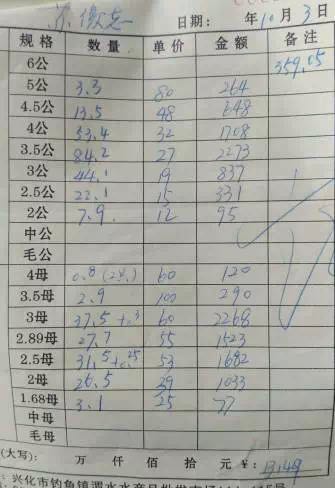 日期: 年10月3日
规格 数量 单价 金额 备注
6公 359.05
5公 3.3 80 264
4.5公 13.5 48 648
4公 53.4 32 1708
3.5公 84.2 27 2273
3公 44.1 19 837
2.5公 22.1 15 331
2公 7.9 12 95
中公
毛公
4母 0.8 60 120
3.5母 2.9 100 290
3母 37.5+0.3 60 2268
2.89母 27.7 55 1523
2.5母 31.5+0.25 53 1682
2母 26.5 39 1033
1.68母 3.1 25 77
中母
毛母
(大写): 万 仟 佰 拾 元 ¥: 13149
兴化市钓鱼镇渭水水产品批发市场